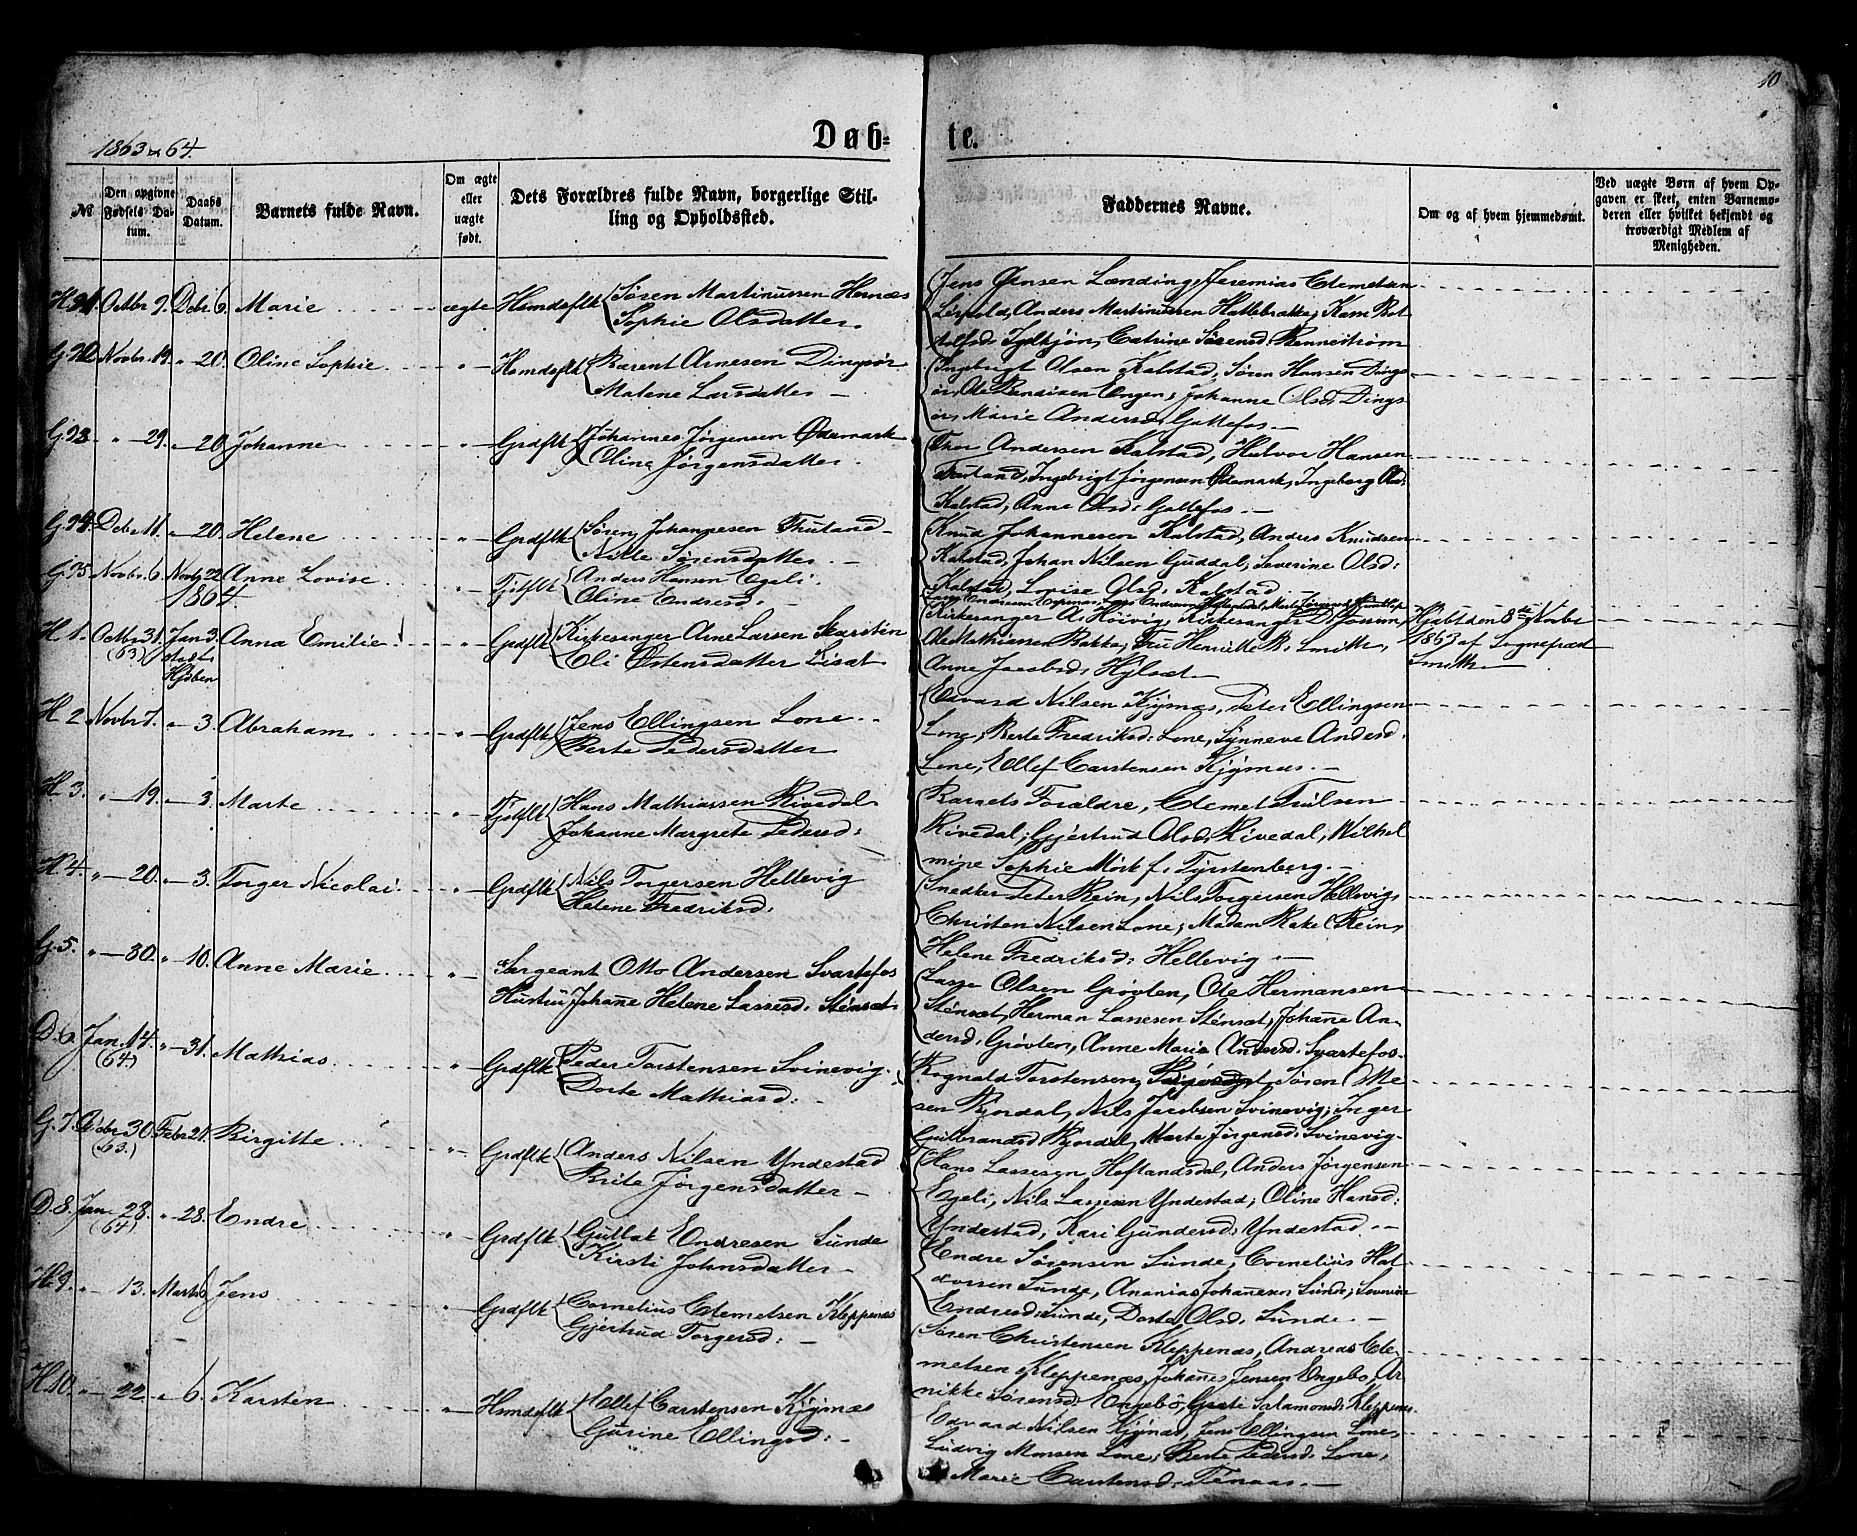 10
1863 & 64.
Døb-
te.
№
Den opgivne Fødsels Da-tum.
Daabs Datum.
Barnets fulde Navn.
Om ægte eller uægte født.
Dets Forældres fulde Navn, borgerlige Stil-
ling og Opholdssted.
Faddernes Navne.
Om og af hvem hjemmedøbt.
Ved uægte Børn af hvem Op-
gaven er skeet, enten Barnemo-
deren eller hvilket bekjendt og
troværdigt Medlem af
Menigheden.
H. 91. Octbr 9. Debr 6. Marie ægte Hsmdsflk Søren Martinussen Hernæs
Sophie Olsdatter
Jens Jensen Lending, Jeremias Clemetsen
Leipold, Anders Martinussen Hattebrække; Karn Bot-
tolfsd Jydkjøn, Catrine Sørensd. Rennestrøm
G. 92 Novbr 19. " 20. Oline Sophie " Hsmdsflk Bærent Arnesen Dingsør
Malene Larsdatter –
Ingebrigt Olsen Kalstad, Søren Hansen Dings-
ør, Ole Bendixen Engen; Johanne Olsd. Dings-
ør, Marie Andersd. Gottefos –
G. 93. " 29. " 20. Johanne " Grdflk Johannes Jørgensen Ødemark
Oline Jørgensdatter
Thor Andersen Kalstad, Halvor Hansen
Trutand, Ingebrigt Jørgensen Ødemark, Ingeborg Olsd.
Kalstad, Anne Olsd. Gottefos –
G. 94. Debr. 11. " 20. Helene " Grdflk Søren Johannesen Trutand
Nille Sørensdatter –
Knud Johannesen Kalstad, Anders Knudsen
Kalstad, Johan Nilsen Guddal, Severine Olsd:
Kalstad, Lovise Olsd. Kalstad
G. 95 Novbr. 6. Novbr 22 Anne Lovise " Tjflflk Anders Hansen Egeli
Oline Endresd.
1864.
H 1. Octbr 31. (63) Jan. 3. stadf. Hjdben Anna Emilie " Grdflk Kirkesanger Arne Larsen Skarstén
Eli Østensdatter Lisæt
Kirkesanger A. Höivig, Kirkesanger D. Fossum,
Ole Mathiesen Bakke; Fru Henriette B. Smith,
Anne Jacobsd. Hylsæt
Hjdøbt den 8de Novbr
1863 af Sognepræst
Smith
H 2. Novbr 7. " 3. Abraham " Grdflk Jens Ellingsen Lone
Berte Pedersdatter
Edvard Nilsen Kjymnæs, Peter Ellingsen
Lone, Berte Fredriksd: Lone, Synneve Andersd.
Lone, Ellef Carstensen Kjymnæs. –
H. 3. " 19. " 3. Marte " Tjdflk Hans Mathiassen Rivedal
Johanne Margrete Pedersd:
Barnets Forældre, Clemet Truelsen
Rivedal; Gjertrud Olsd. Rivedal, Wilhel-
mine Sophie Mörk f. Fyrstenberg. –
H. 4. " 20. " 3. Torger Nicolai " Grdflk Nils Torgersen Hellevig
Helene Fredriksd:
Snedker Peter Rein, Nils Torgersen Hellevig,
Christen Nilsen Lone; Madam Rake Rein,
Helene Fredriksd: Hellevig –
G. 5. " 30. " 10. Anne Marie " Sergeant Otto Andersen Svartefos
Hustru Johanne Helene Lassesd. Sténsæt
Lasse Olsen Grövlen, Ole Hermansen
Sténsæt, Herman Lassesen Sténsæt; Johanne An-
dersd. Grövlen, Anne Marie Andersd. Svartefos
D. 6. Jan. 14. (64) " 31. Mathias " Grdflk Peder Torstensen Svinevig
Dorte Mathiasd:
Rognald Torstensen, Søren Ole-
sen Fjordal, Nils Jacobsen Svinevig; Inger
Gulbrandsd. Fjordal, Marte Jørgensd. Svinevig
G. 7. Debr 30. (63.) Febr 21. Birgitte " Grdflk Anders Nilsen Yndestad
Brite Jørgensdatter –
Hans Lassesen Heftandsdal, Anders Jørgensen
Egeli, Nils Lassesen Yndestad; Oline Hansd:
Yndestad, Kari Gundersd: Yndestad –
D. 8. Jan. 23. (64) " 28. Endre " Grdflk Gullak Endresen Sunde
Kirsti Johnsdatter –
Endre Sørensen Sunde, Cornelius Hal-
vorsen Sunde, Ananias Johannesen Sunde; Severine
Endresd. Sunde, Dorte Olsd. Sunde. –
H. 9. " 13. Marts 6 Jens " Grdflk Cornelius Clemetsen Kleppenæs
Gjertrud Torgersd: –
Søren Christensen Kleppenæs, Andreas Cle-
metsen Kleppenæs, Johannes Jensen Engebø, An-
nikke Sørensd. Engebö, Grete Salamonsd. Kleppenæs
H. 10. " 22. " 6. Karsten " Hsmdsflk Ellef Carstensen Kjymnæs
Gurine Ellingsd: –
Edvard Nilsen Kjymnæs, Jens Ellingsen Lone,
Ludvig Monsen Lone; Berte Pedersd. Lone,
Marie Carstensd. Tenaas. –